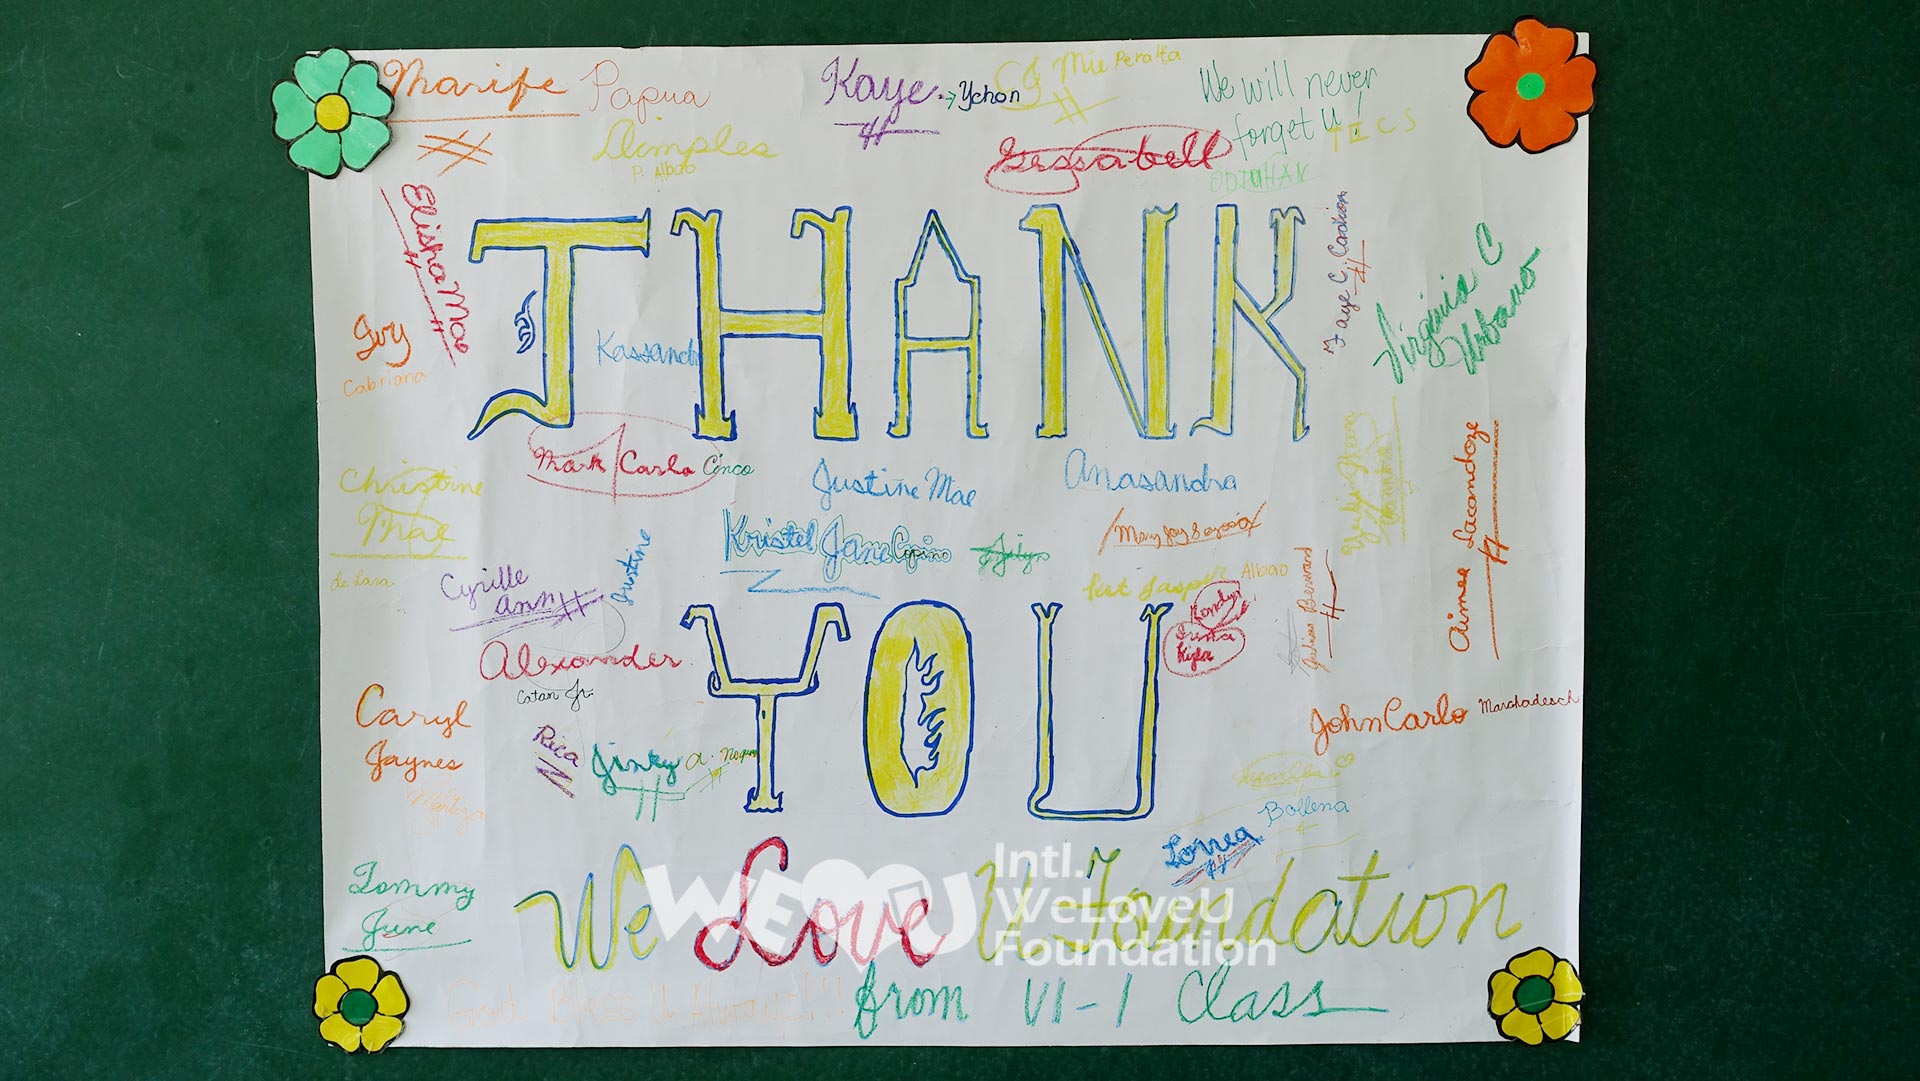 Marife Papua
Kaye → Ychon
Mie Peralta
We will never
forget U!
Dimples
P. Albao
Gerssabell
ODZUHAN
Elisha Mae
Faye C.
Virginia C
Urbano
Ivy
Cabriana
THANK
Kassandra
Mark Carlo Cinco
Justine Mae
Anasandra
Christine
Mae
de Lara
Kristel Jane Copino
Cyrille
Ann
Justine
Albao
Aimee
Alexander
Catan Jr.
YOU
Irena
Kyla
Caryl
Jaynes
John Carlo
Rica
Jinky
Bollena
Lovea
Tommy
June
We Love U Foundation
WELOVEU
Intl.
WeLoveU
Foundation
God Bless U Always!!!
from VI-1 Class